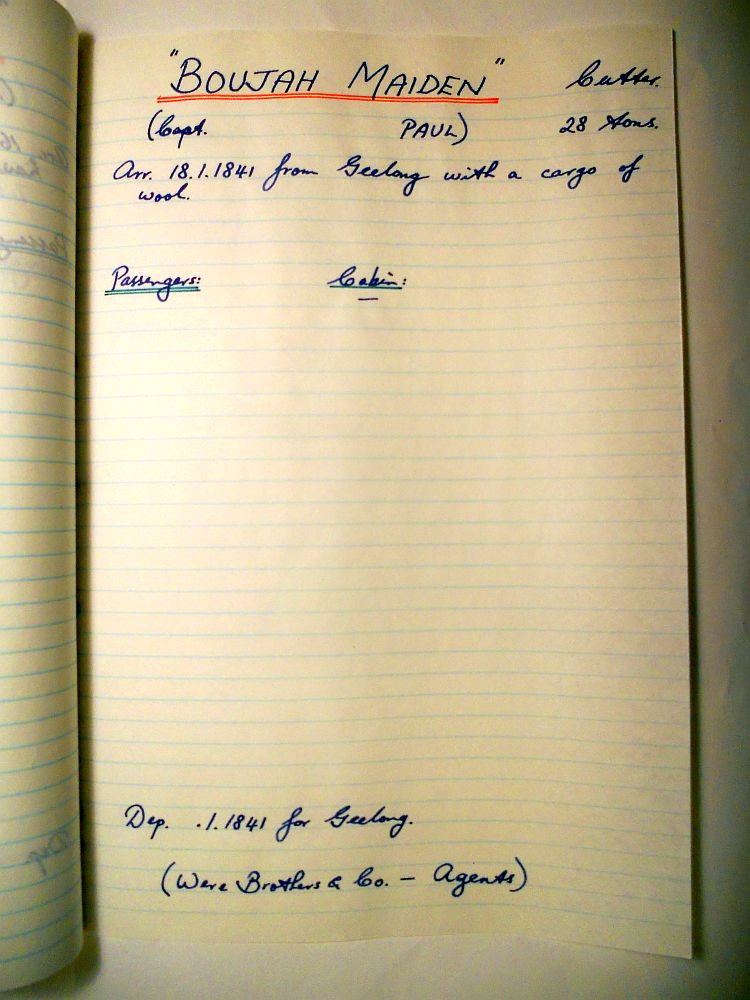 "BOUJAH MAIDEN" Cutter.
(Capt. PAUL) 28 tons.
Arr. 18.1.1841 from Geelong with a cargo of
wool.
Passengers: Cabin:
—
Dep. .1.1841 for Geelong.
(Were Brothers & Co. — Agents)